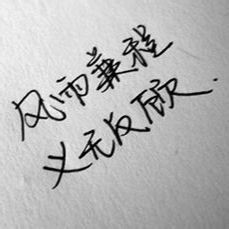 风雨兼程
义无反顾.